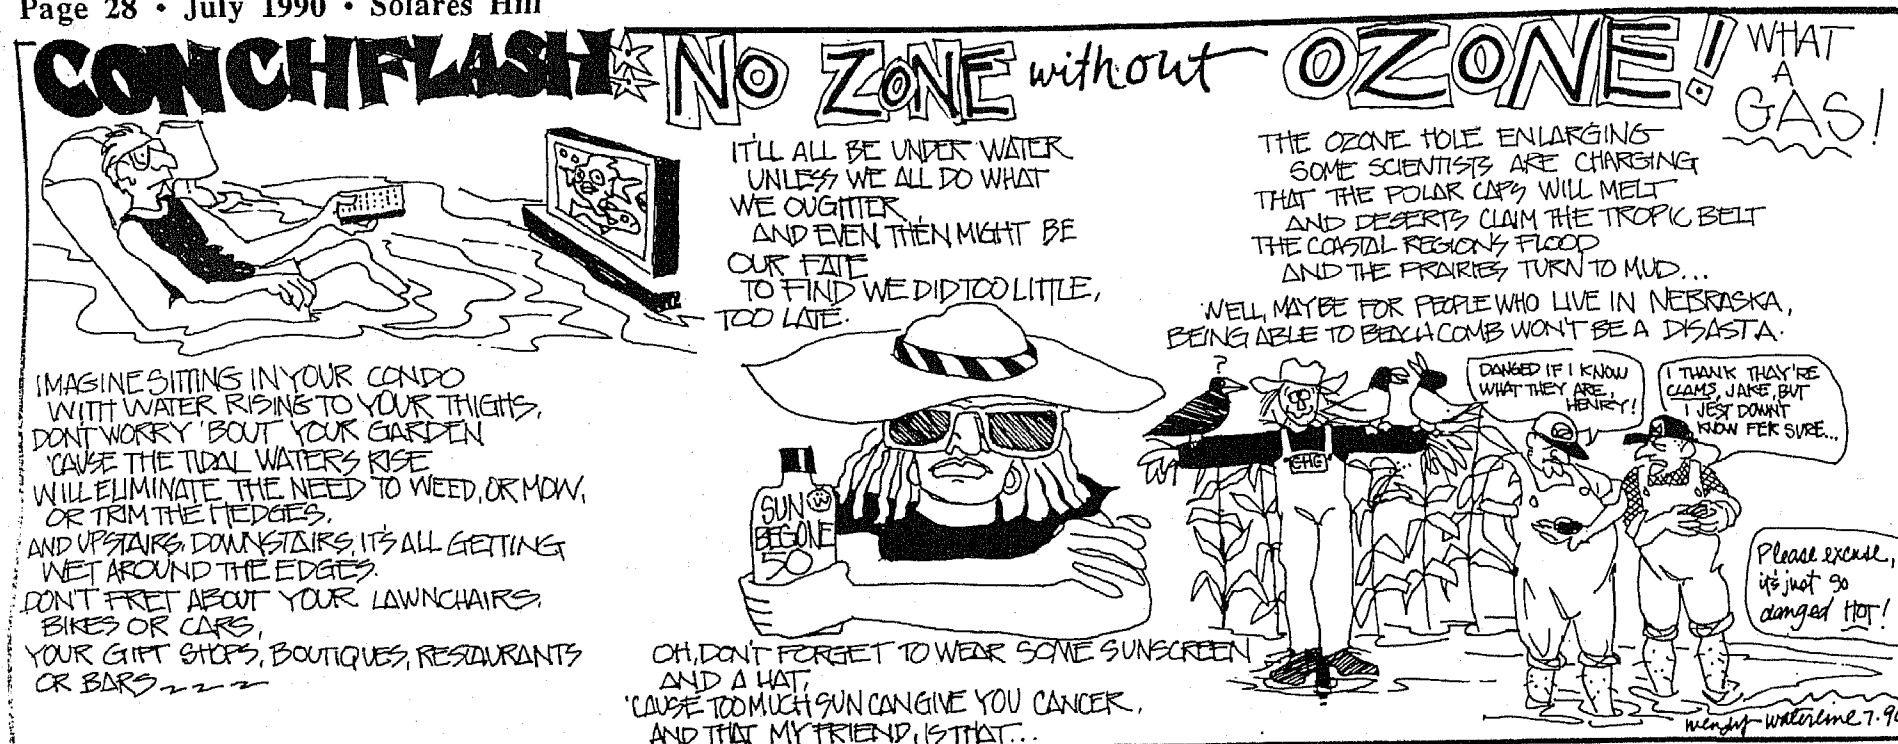 Page 28 • July 1990 • Solares Hill
CONCHFLASH
NO ZONE without OZONE!
WHAT
A
GAS!
IMAGINE SITTING IN YOUR CONDO
WITH WATER RISING TO YOUR THIGHS,
DON'T WORRY 'BOUT YOUR GARDEN
'CAUSE THE TIDAL WATERS RISE
WILL ELIMINATE THE NEED TO WEED, OR MOW,
OR TRIM THE HEDGES.
AND UPSTAIRS, DOWNSTAIRS, IT'S ALL GETTING
WET AROUND THE EDGES.
DON'T FRET ABOUT YOUR LAWNCHAIRS,
BIKES OR CARS,
YOUR GIFT SHOPS, BOUTIQUES, RESTAURANTS
OR BARS~~~~
IT'LL ALL BE UNDER WATER
UNLESS WE ALL DO WHAT
WE OUGHTTER
AND EVEN THEN MIGHT BE
OUR FATE
TO FIND WE DID TOO LITTLE,
TOO LATE.
SUN
BEGONE
50
OH, DON'T FORGET TO WEAR SOME SUNSCREEN
AND A HAT,
'CAUSE TOO MUCH SUN CAN GIVE YOU CANCER,
AND THAT MY FRIEND, IS THAT...
THE OZONE HOLE ENLARGING
SOME SCIENTISTS ARE CHARGING
THAT THE POLAR CAPS WILL MELT
AND DESERTS CLAIM THE TROPIC BELT
THE COASTAL REGIONS FLOOD
AND THE PRAIRIES TURN TO MUD...
WELL, MAYBE FOR PEOPLE WHO LIVE IN NEBRASKA,
BEING ABLE TO BEACHCOMB WON'T BE A DISASTA.
?
GHG
DANGED IF I KNOW
WHAT THEY ARE,
HENRY!
I THANK THAY'RE
CLAMS, JAKE, BUT
I JEST DOWN'T
KNOW FER SURE...
Please excuse,
it's just so
danged HOT!
wendy waterline 7.90